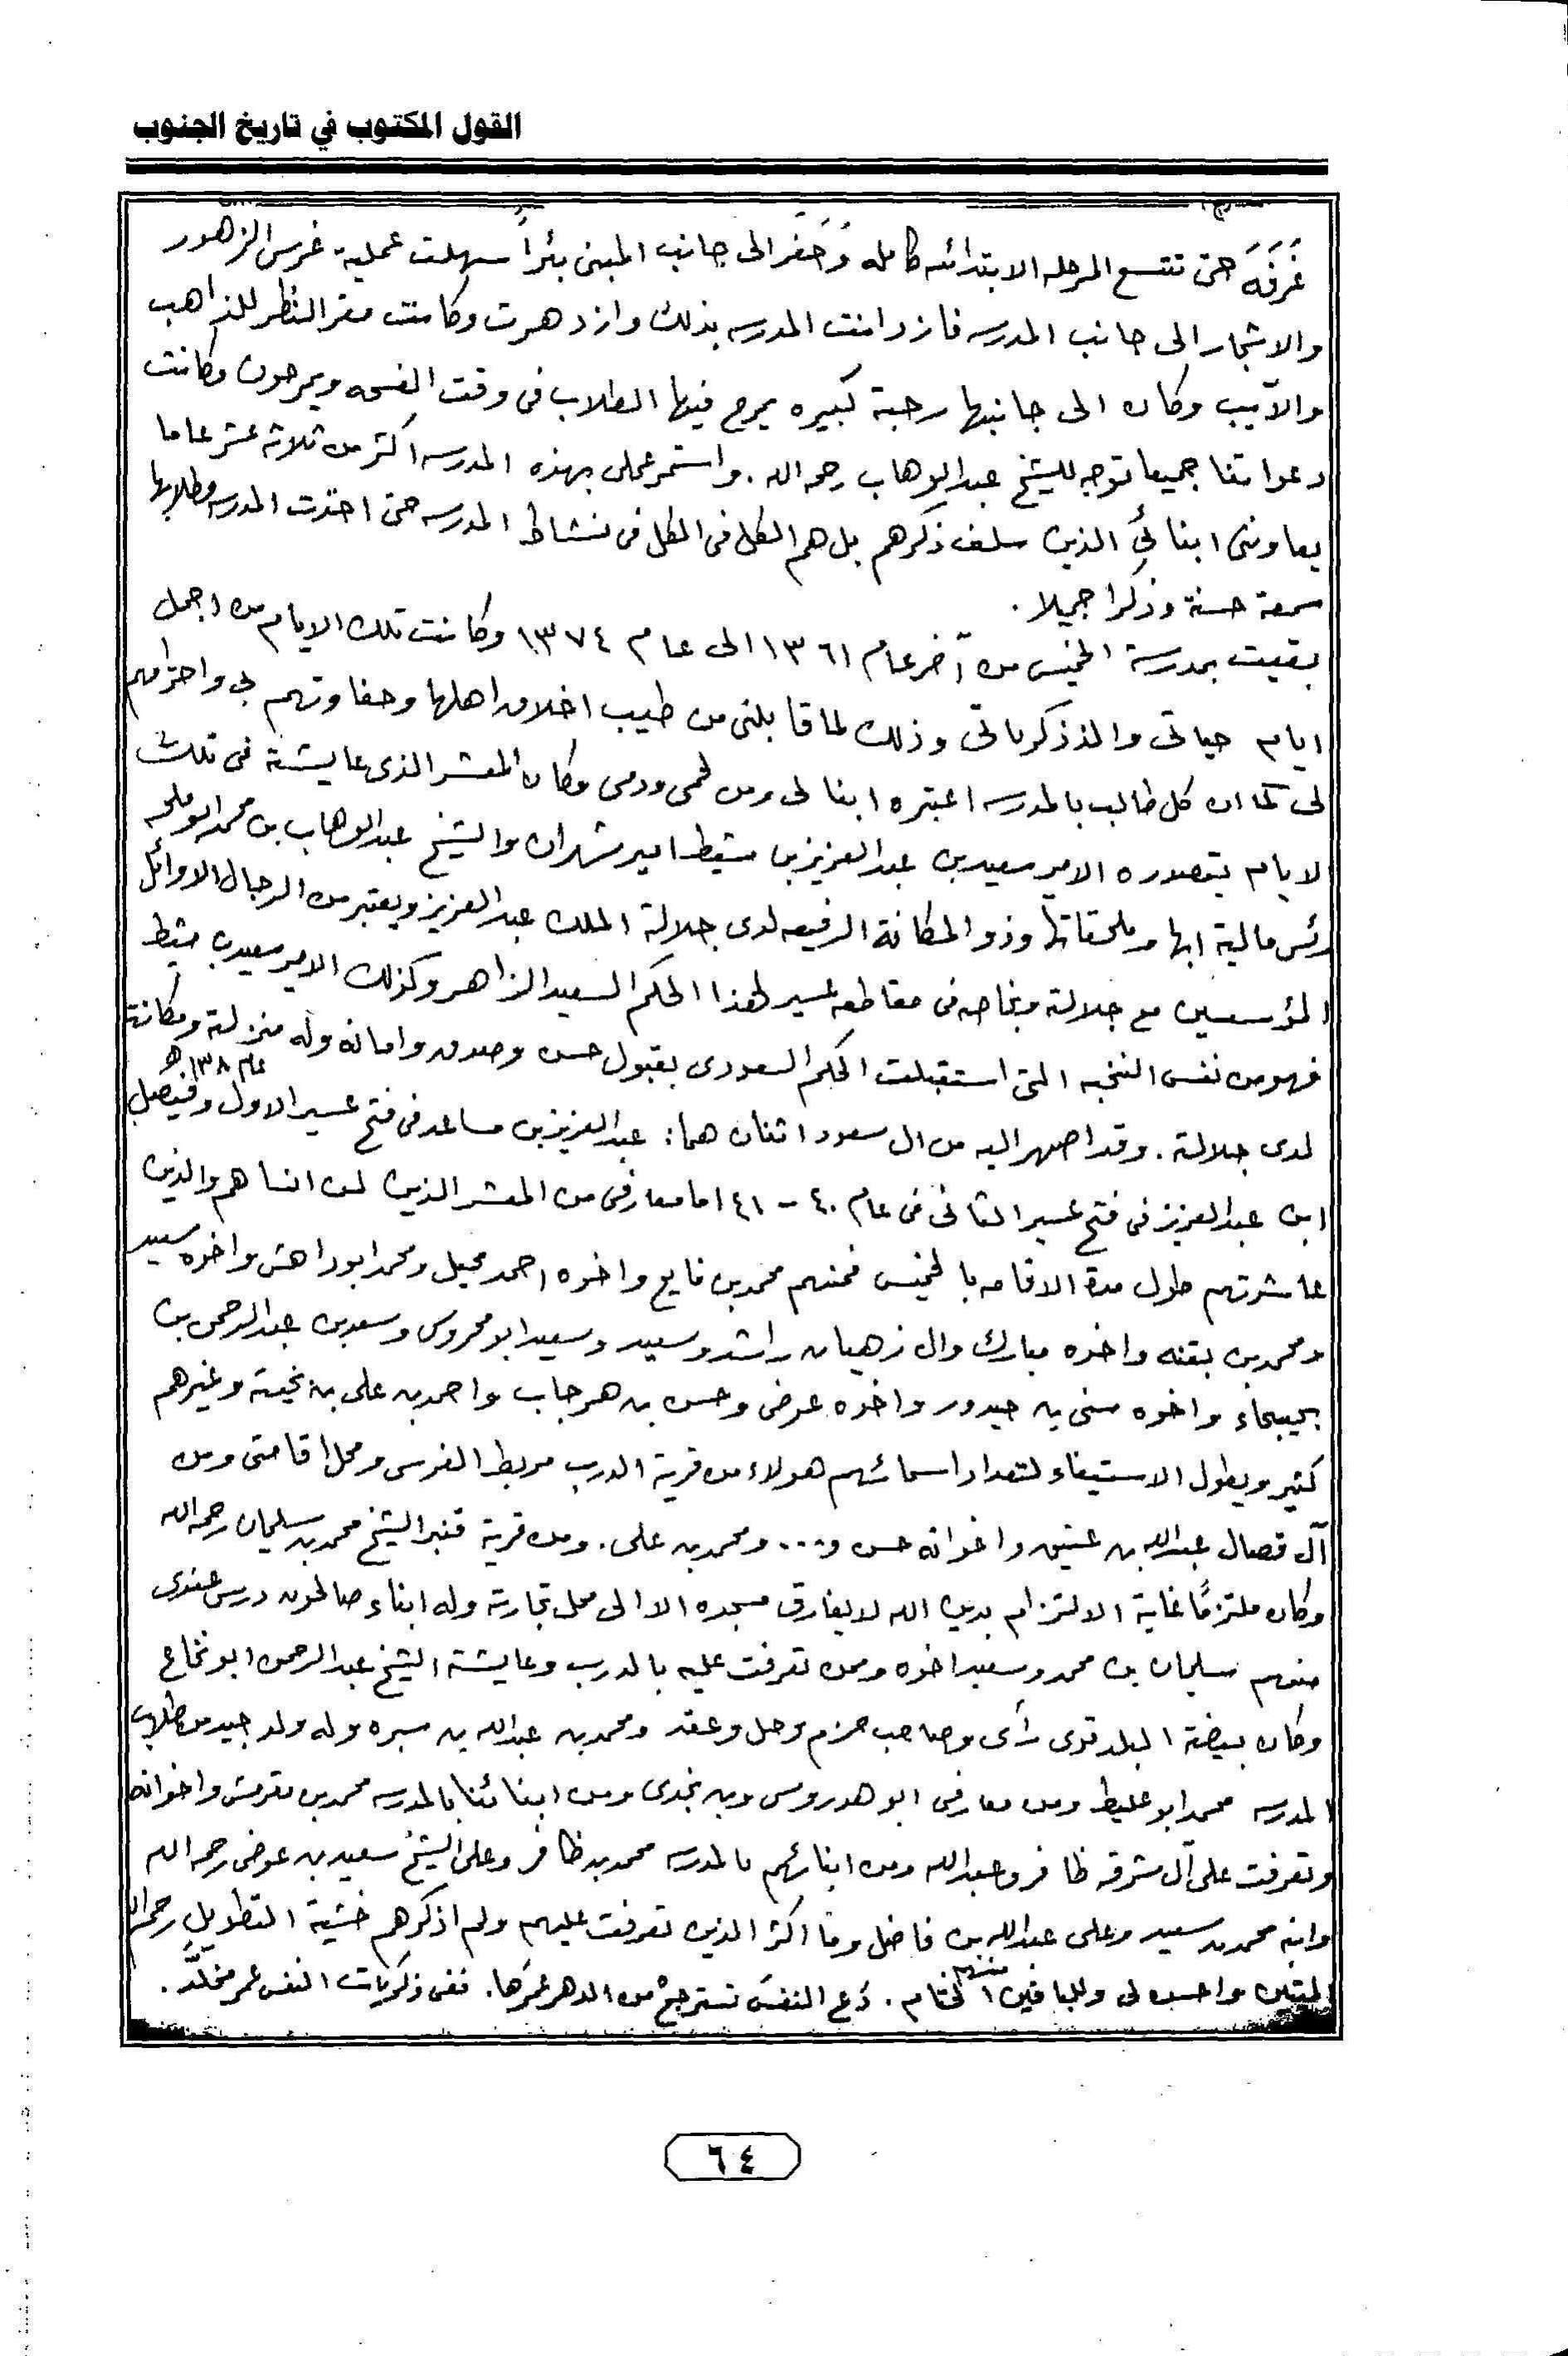 القول المكتوب في تاريخ الجنوب
غُرفَهَ حتى تتسع المرحله الابتدائيه كامله وَحَفر الى جانب المبنى بئراً سهلت عملية غرس الزهور
والاشجار الى جانب المدرسه فازدانت المدرسه بذلك وازدهرت وكانت مقر النظر للذاهب
والآيب وكان الى جانبها رحبة كبيره يمرح فيها الطلاب فى وقت الفسحه ويمرحون وكانت
دعواتنا جميعا توجه للشيخ عبدالوهاب رحمه الله . واستمر عملى بهذه المدرسه اكثر من ثلاثة عشر عاما
يعاوننى ابنائي الذين سلف ذكرهم بل هم الكل فى الكل فى نشاط المدرسه حتى اخذت المدرسه وطلابها
سمعة حسنة وذكرا جميلا .
بقيت بمدرسة الخميس من آخر عام ١٣٦١ الى عام ١٣٧٤ وكانت تلك الايام من اجمل
ايام حياتى والذ ذكرياتى وذلك لما قابلنى من طيب اخلاق اهلها وحفاوتهم بى واحترامهم
لى كما ان كل طالب بالمدرسه اعتبره ابنا لى ومن لحمى ودمى وكان المعشر الذى عايشته فى تلك
الايام يتصدره الامير سعيد بن عبدالعزيز بن مشيط امير شهران والشيخ عبدالوهاب بن محمد ابوملحه
رئس مالية ابها وملحقاتها وذو المكانة الرفيعه لدى جلالة الملك عبدالعزيز ويعتبر من الرجال الاوائل
المؤسسين مع جلالته وبخاصه فى مقاطعه عسير لهذا الحكم السعيد الزاهر وكذلك الامير سعيد بن مشيط
فهو من نفس النخبه التى استقبلت الحكم السعودى بقبول حسن وصدق وامانه وله منزلة ومكانة
لدى جلالته . وقد اصهر اليه من ال سعود اثنان هما : عبدالعزيز بن مساعد فى فتح عسير الاول عام ١٣٨هـ وفيصل
ابن عبدالعزيز فى فتح عسير الثانى فى عام ٤٠ - ٤١ اما معارفى من المعشر الذين لن انساهم والذين
عاشرتهم طول مدة الاقامه بالخميس فمنهم محمد بن فايع واخوه احمد محيل ومحمد ابوداهش واخوه سعيد
ومحمد بن بقنه واخوه مبارك وال زهيان راشد وسعيد وسعيد ابو محروس وسعد بن عبدالرحمن بن
واخوه مسفى بن حيدور واخوه عوض وحسن بن هرجاب واحمد بن على بن نحيته وغيرهم
كثير ويطول الاستيفاء لتعداد اسمائهم هولاء من قرية الدرب مربط الفرس ومحل اقامتى ومن
آل قصال عبدالله بن عتيق واخوانه حسن و... ومحمد بن على . ومن قرية قنبر الشيخ محمد بن سليمان رحمه الله
وكان ملتزمًا غاية الالتزام بدين الله لا يفارق مسجده الا الى محل تجارته وله ابناء صالحون درس عندى
منهم سليمان بن محمد وسعيد اخوه وممن تعرفت عليه بالدرب وعايشته الشيخ عبدالرحمن ابو نخاع
وكان بيضة البلد قوى رأى وصاحب حزم وحل وعقد ومحمد بن عبدالله بن سبره وله ولد جيد من طلاب
المدرسه محمد ابو غليط ومن معارفى ابو هدروس وبن نجدى ومن ابنائنا بالمدرسه محمد بن مقرمش واخوانه
وتعرفت على آل مشرقه ظافر وعبدالله ومن ابنائهم بالمدرسه محمد بن ظافر وعلى الشيخ سعيد بن عوض رحمه الله
وابنه محمد بن سعيد وعلى عبدالله بن فاضل وما اكثر الذين تعرفت عليهم ولم اذكرهم خشية التطويل رحم الله
الميتين منهم واحسن لى وللباقين الختام . دَعِ النفسَ تسترجعْ من الدهر عُمرَها . ففى ذكريات النفس عمر مخلَّدُ .
٦٤